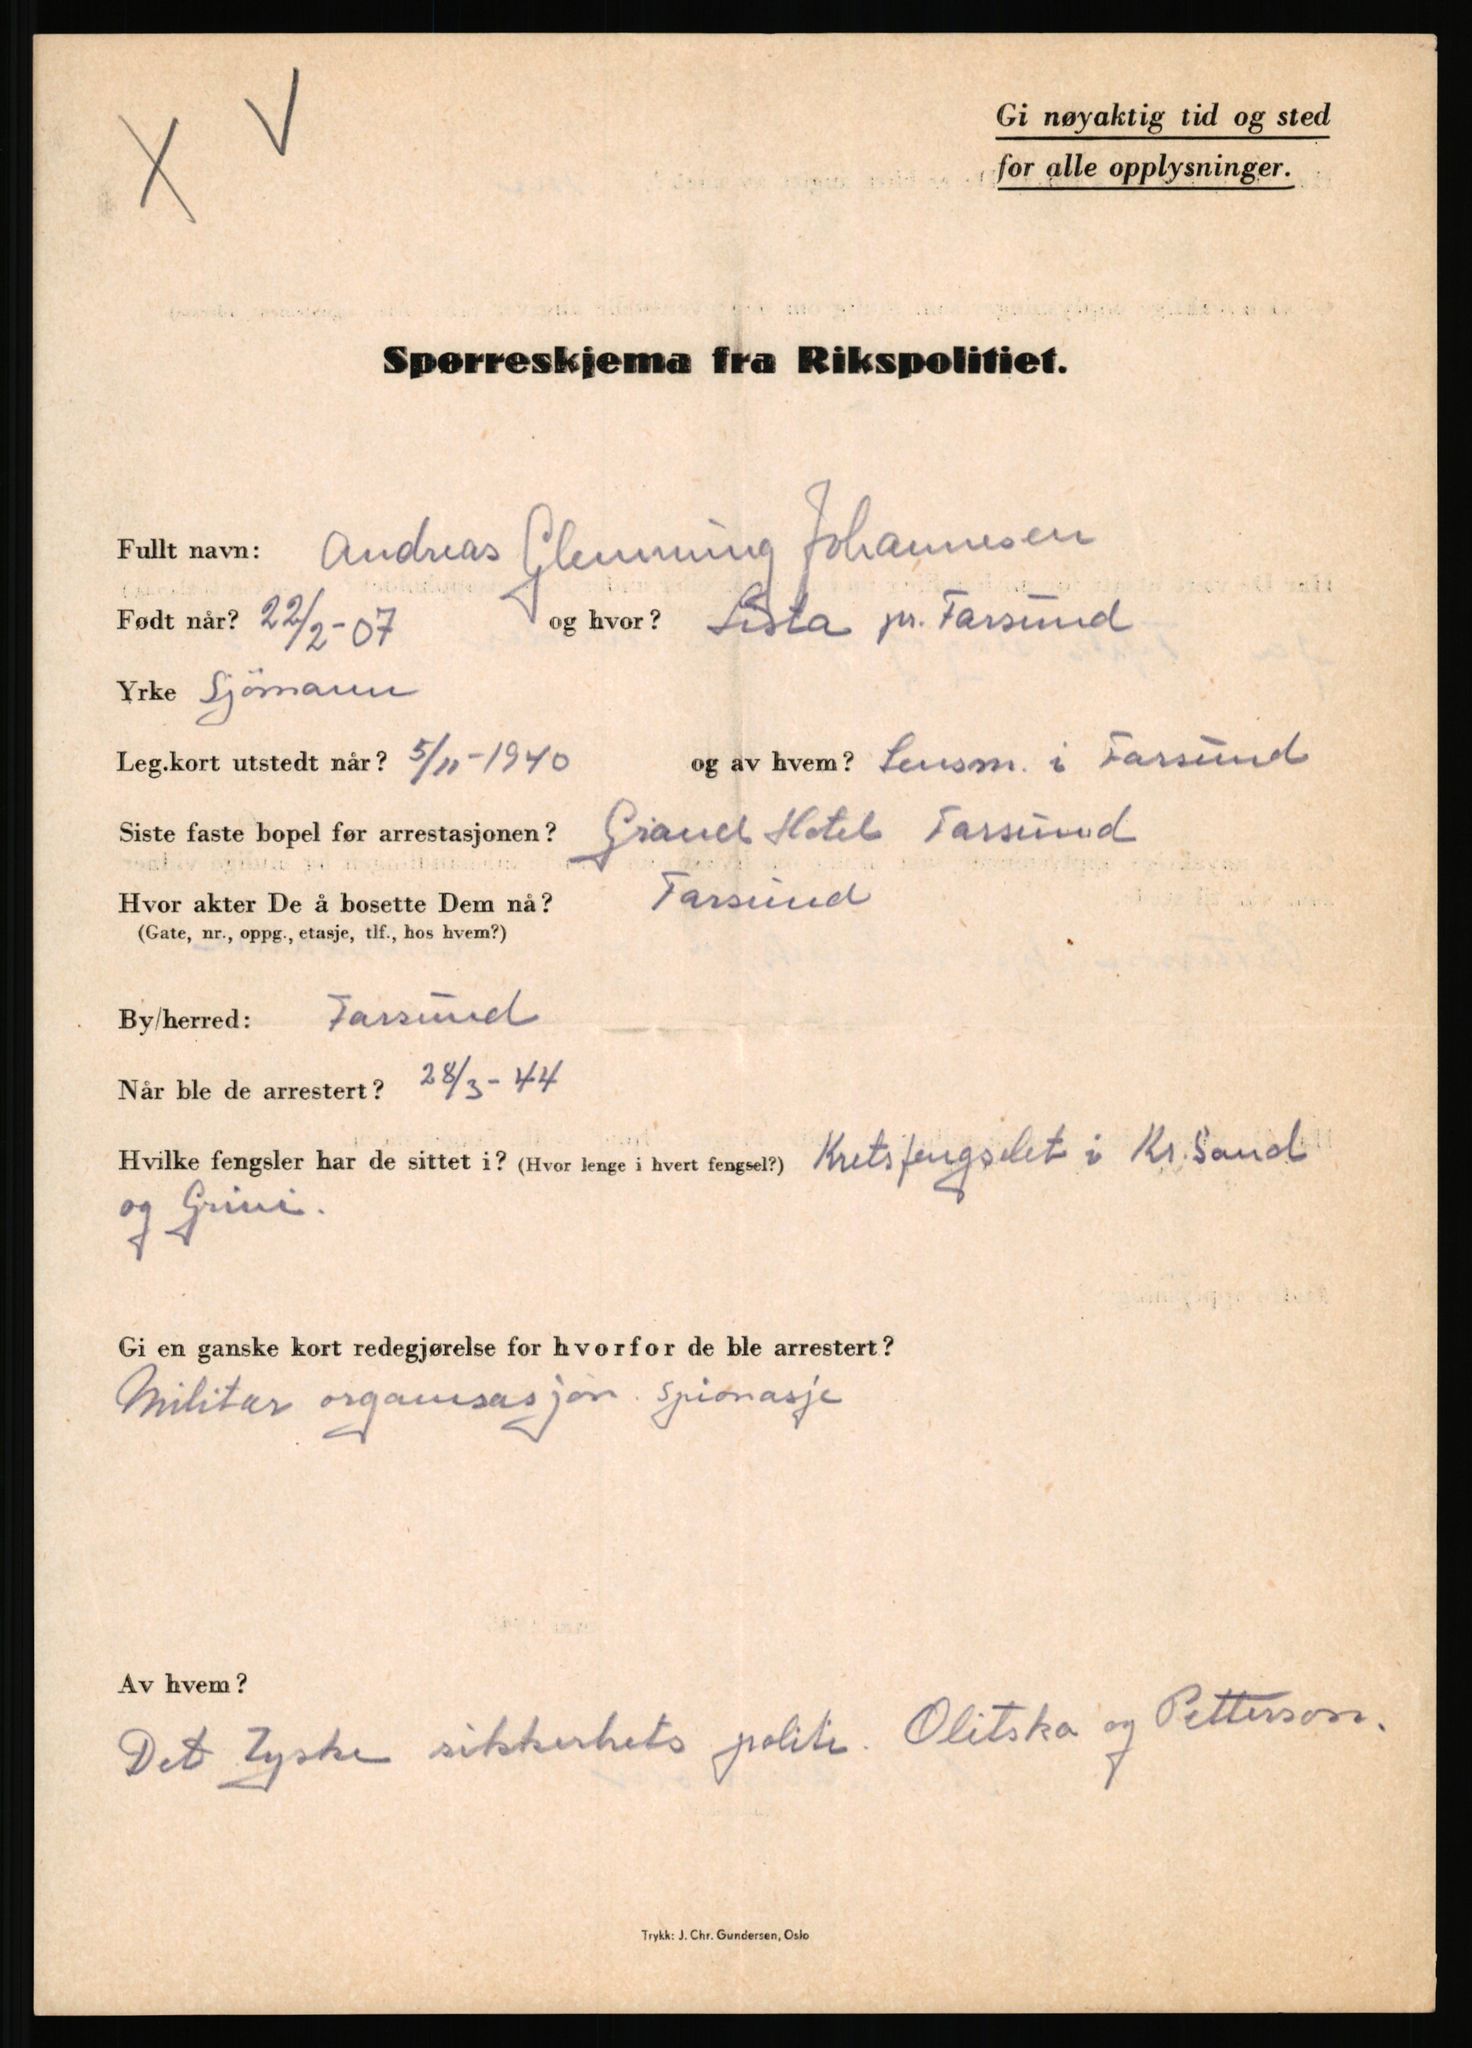 X V
Gi nøyaktig tid og sted
for alle opplysninger.
Spørreskjema fra Rikspolitiet.
Fullt navn: Andreas Glemming Johannesen
Født når? 22/2-07 og hvor? Lista pr. Farsund
Yrke Sjömann
Leg.kort utstedt når? 5/11-1940 og av hvem? Lensm. i Farsund
Siste faste bopel før arrestasjonen? Grand Hotel Farsund
Hvor akter De å bosette Dem nå? Farsund
(Gate, nr., oppg., etasje, tlf., hos hvem?)
By/herred: Farsund
Når ble de arrestert? 28/3-44
Hvilke fengsler har de sittet i? (Hvor lenge i hvert fengsel?) Kretsfengslet i Kr. Sand
og Grini.
Gi en ganske kort redegjørelse for hvorfor de ble arrestert?
Militær organisasjon. Spionasje
Av hvem?
Det Tyske sikkerhets politi. Olitska og Petterson.
Trykk: J. Chr. Gundersen, Oslo